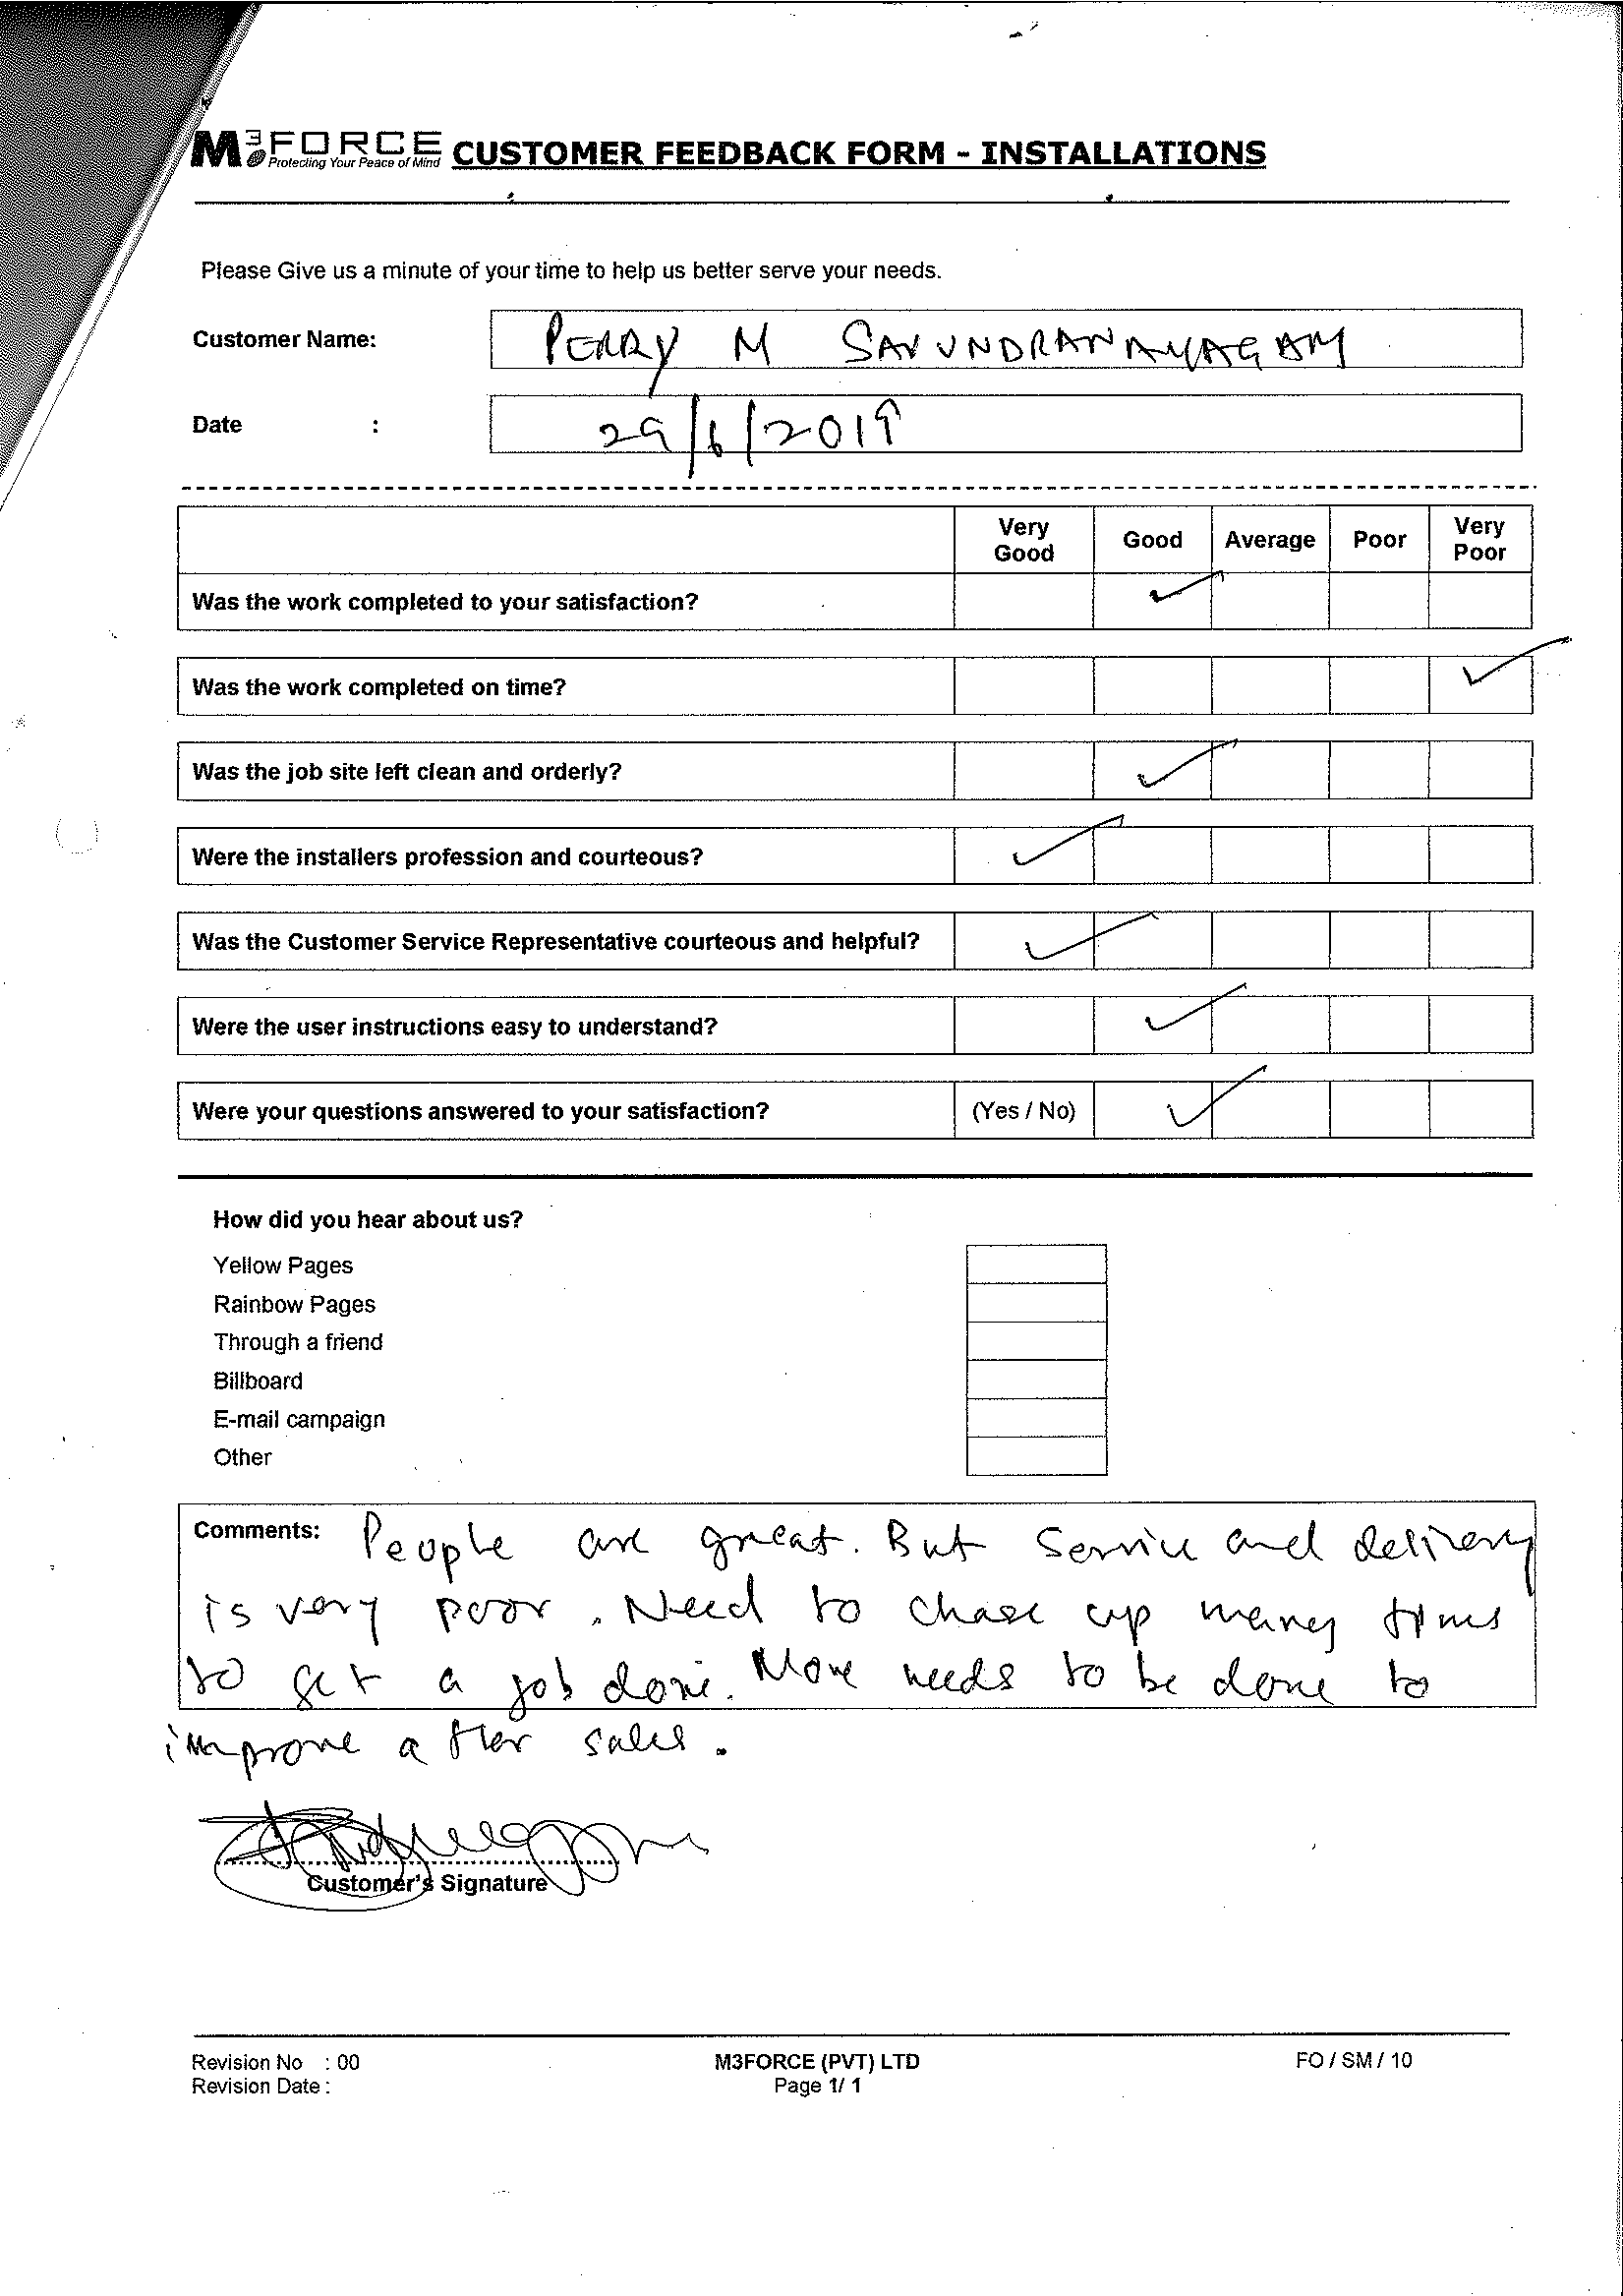 M3FORCE CUSTOMER FEEDBACK FORM - INSTALLATIONS
Protecting Your Peace of Mind
Please Give us a minute of your time to help us better serve your needs.
Customer Name: PERRY M SAVUNDRANAYAGAM
Date : 29/6/2019
Very Good Good Average Poor Very Poor
Was the work completed to your satisfaction? ✓
Was the work completed on time? ✓
Was the job site left clean and orderly? ✓
Were the installers profession and courteous? ✓
Was the Customer Service Representative courteous and helpful? ✓
Were the user instructions easy to understand? ✓
Were your questions answered to your satisfaction? (Yes / No) ✓
How did you hear about us?
Yellow Pages
Rainbow Pages
Through a friend
Billboard
E-mail campaign
Other
Comments: People are great. But Service and delivery
is very poor. Need to chase up many times
to get a job done. More needs to be done to
improve after sales.
Customer's Signature
Revision No : 00 M3FORCE (PVT) LTD FO / SM / 10
Revision Date : Page 1/ 1